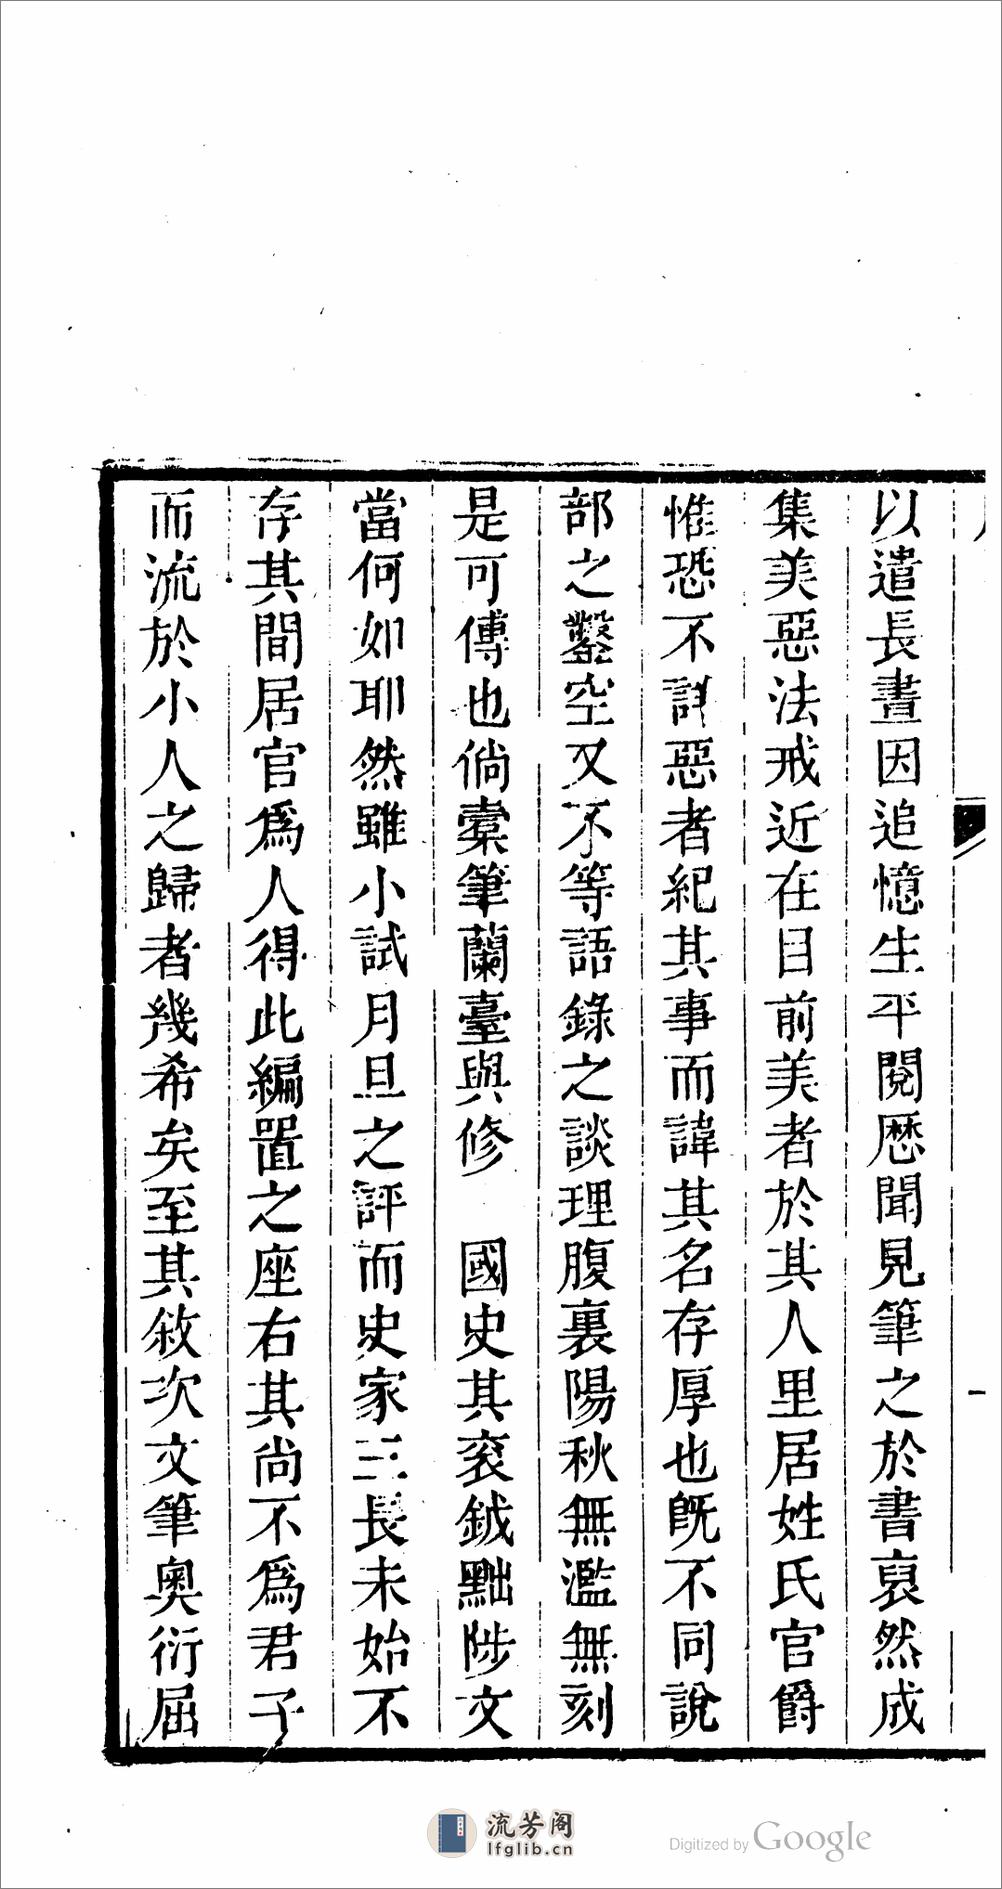 以遣長晝因追憶生平閱歷聞見筆之於書裒然成
集美惡法戒近在目前美者於其人里居姓氏官爵
惟恐不詳惡者紀其事而諱其名存厚也旣不同說
部之鑿空又不等語錄之談理腹裏陽秋無濫無刻
是可傳也倘橐筆蘭臺與修　國史其袞鉞黜陟文
當何如耶然雖小試月旦之評而史家三長未始不
存其間居官爲人得此編置之座右其尚不爲君子
而流於小人之歸者幾希矣至其敘次文筆奥衍屈
流芳阁
lfglib.cn
Digitized by Google